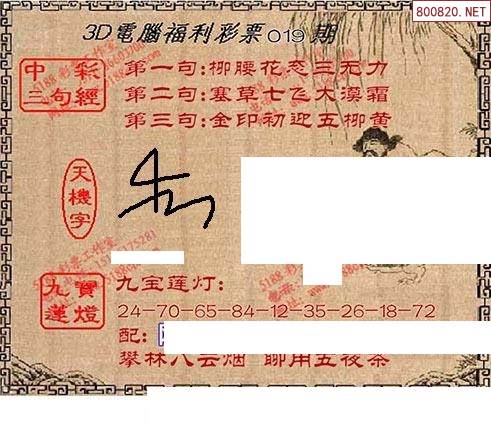 800820.NET
3D電腦福利彩票019期
中彩
三句經
第一句:柳腰花态三无力
第二句:塞草士飞大漠霜
第三句:金印初迎五柳黄
天機字
九寶
蓮燈
九宝莲灯:
24-70-65-84-12-35-26-18-72
配:
攀林八云烟 聊用五夜茶